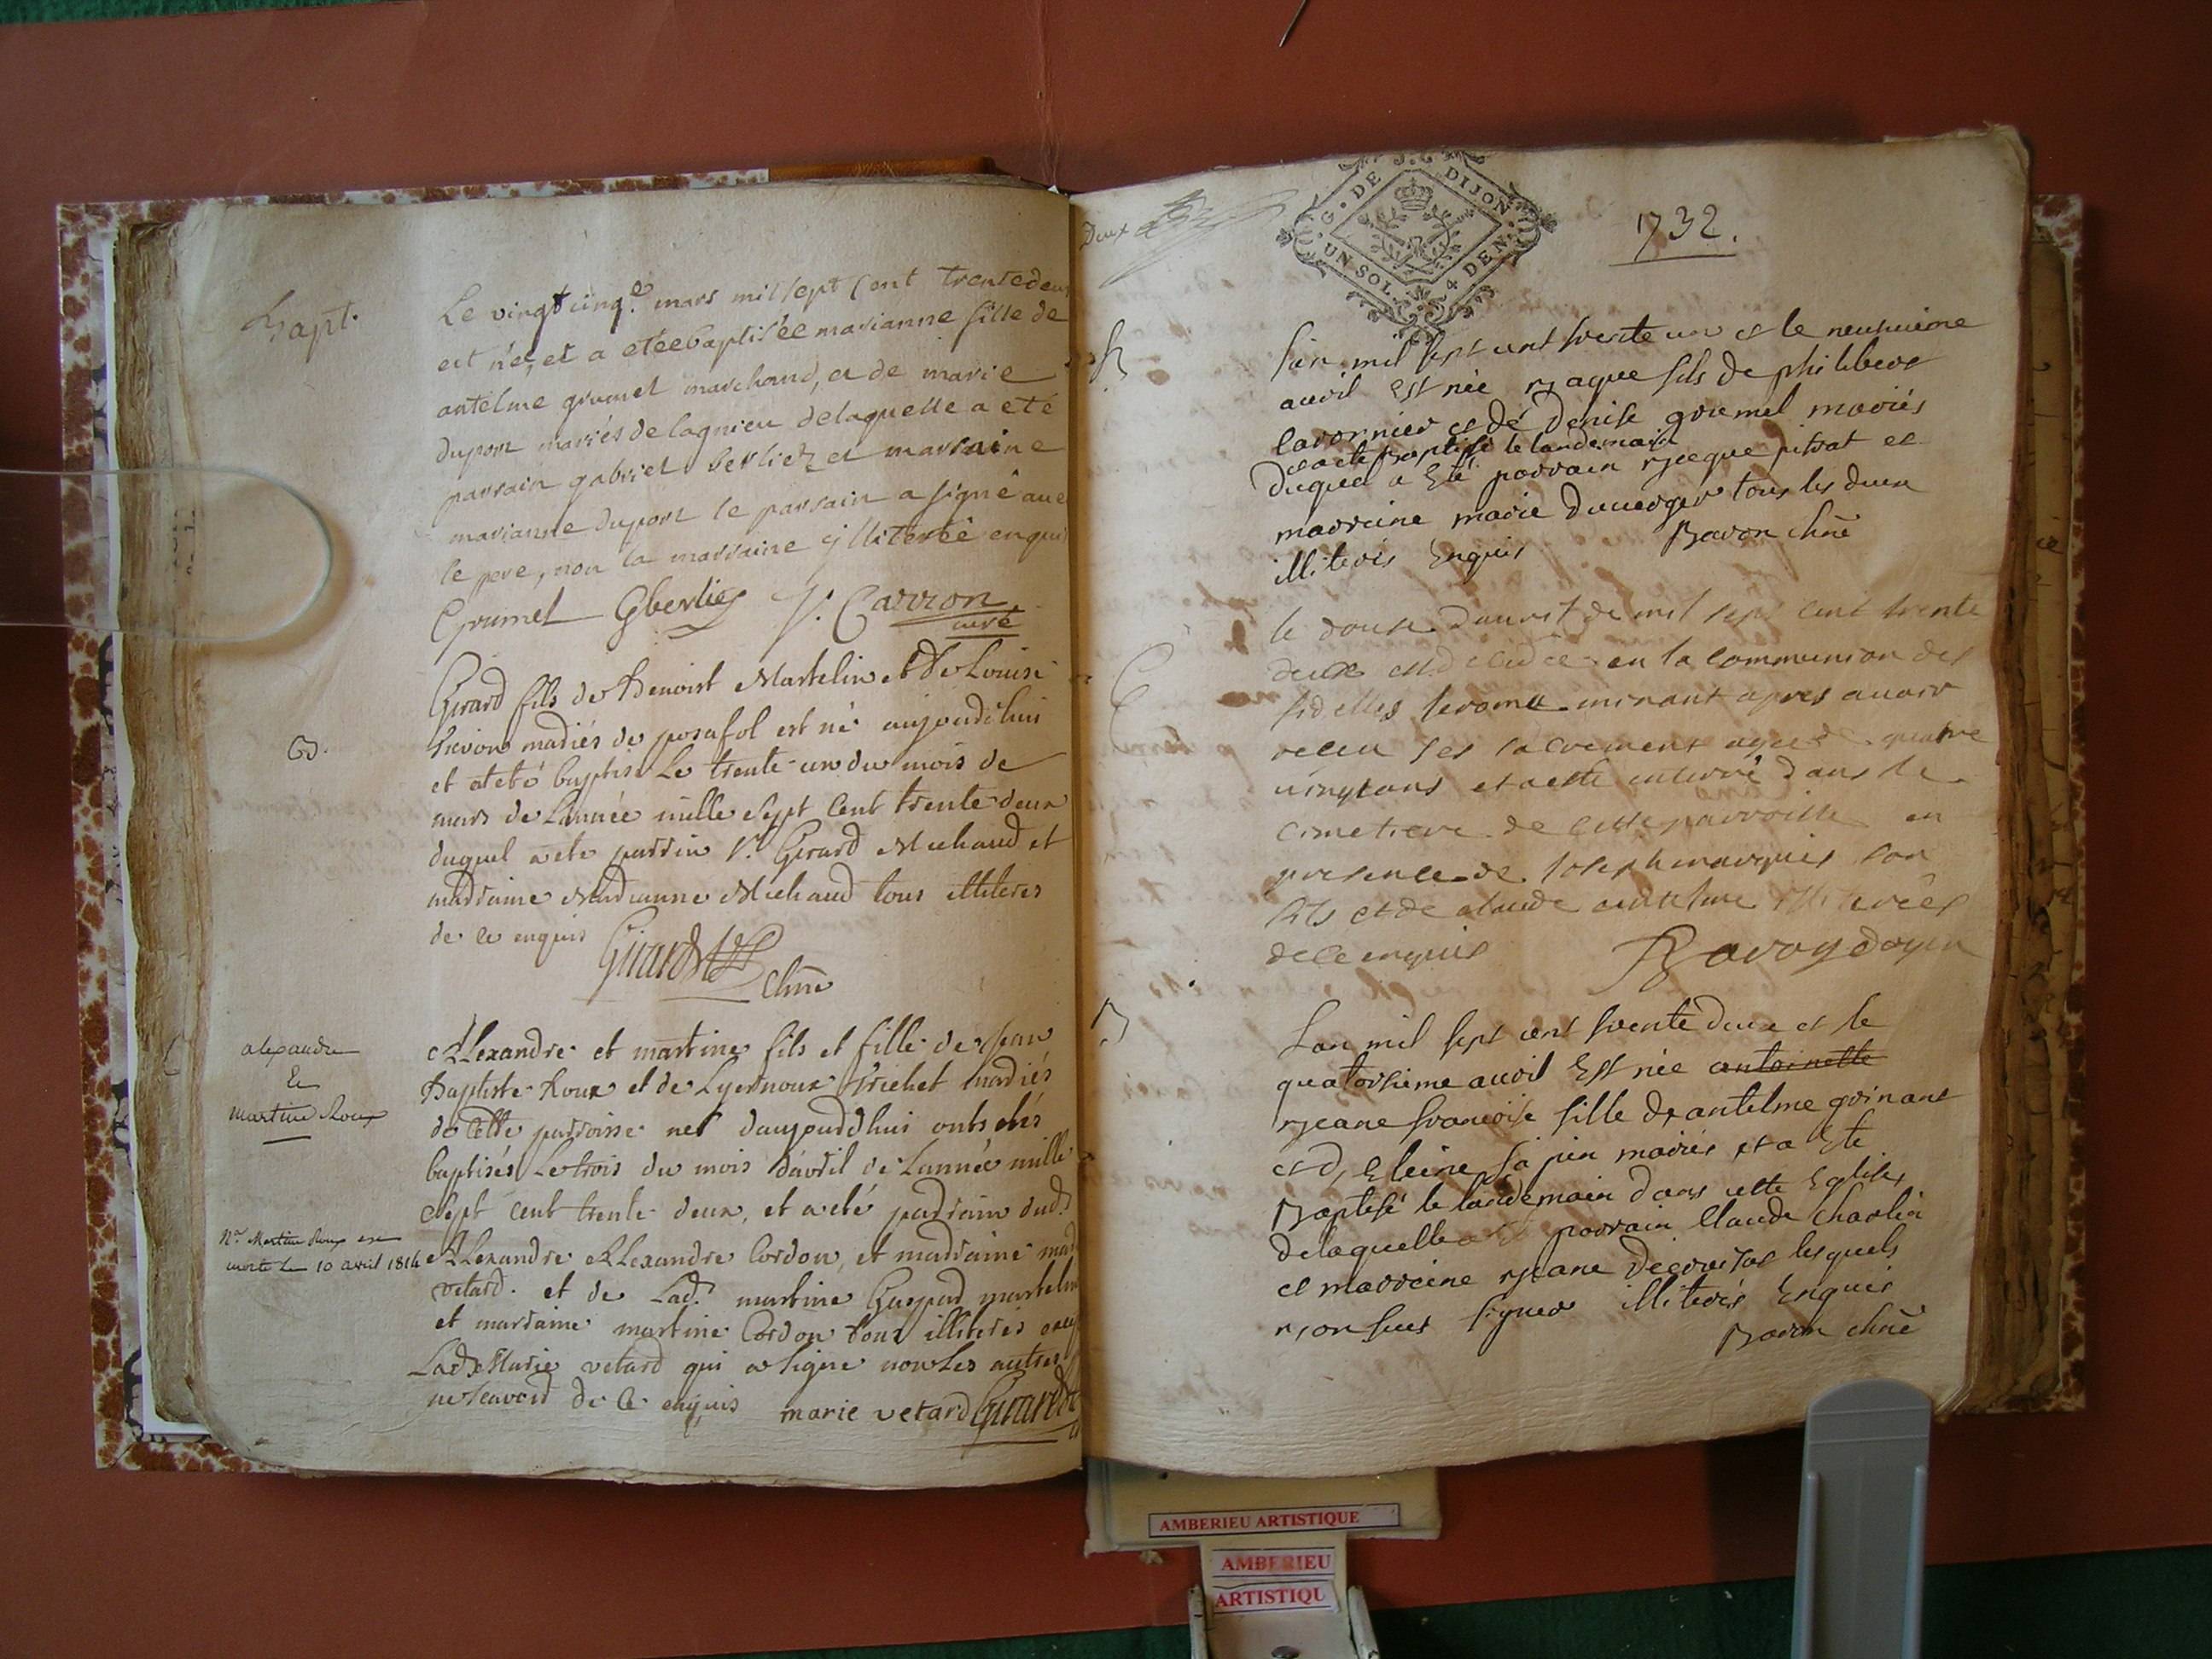 Bapt.
Le vingt cinq.e mars mil sept cent trente deux
est née, et a eteé baptisée marianne fille de
antelme grumel marchand, et de marie
duport mariés de lagnieu delaquelle a eté
parrain gabriel berliez et marraine
marianne duport le parrain a signé avec
le pere, non la marraine illiterée enquis
Grumel Gberliez J. Carron
curé
B.
Girard fils de Benoist Martelin et de Louise
mariés de posafol est né aujourdhui
et a eté baptisé Le trente-un du mois de
mars de Lannée mille sept cent trente deux
duquel a ete parrin Sr. Girard Michaud et
marraine Marianne Michaud tous illiteres
de ce enquis Girard
Chne
alexandre
et
martine Roux
Alexandre et martine fils et fille de Jean
Baptiste Roux et de Trichet mariés
de cette parroisse nes daujourdhui onts etés
baptisés Le trois du mois d'avril de Lannée mille
Sept cent trente deux, et a eté parrain dud.
Alexandre Alexandre Cordon, et marraine
vetard. et de Lad. martine Gaspard martelin
et marraine martine Cordon tous illiterés
Lad. Marie vetard qui a signe non Les autres
de ce enquis marie vetard Girard
Na. Martine Roux est
morte le 10 avril 1814
Deux
G. DE DIJON
UN SOL. 4 DEN.
1732.
B
Lan mil sept cent trente un et le neufvieme
avril Est née Jaque fils de philibert
Lavornier et de Denise grumel mariés
et a ete Baptisé le landemain
duquel a Eté parrain Jacque pitrat et
marreine marie Duverger tous les deux
illiterés Enquis Bavon chne
le douse d'avril de mil sept cent trente
deux est décédé en la communion des
fidelles Jerome minant apres avoir
receu ses sacrement agée de quatre
vingt ans et a esté enterré dans le
cimetiere de cette parroisse en
presence de Joseph marquis son
fils et de claude antelme illiterées
de ce enquis Bavoy doyen
B
Lan mil sept cent trente deux et le
quatorsieme avril Est née antoinette
Jeane francoise fille de antelme grinant
et D, Eleine mariés et a Ete
Baptisé le landemain dans cette Eglise,
delaquelle a Eté parrain Claude Charlin
et marreine Jeane lesquels
n'on sceu signer illiterés Enquis
Bavon chne
AMBERIEU ARTISTIQUE
AMBERIEU
ARTISTIQU